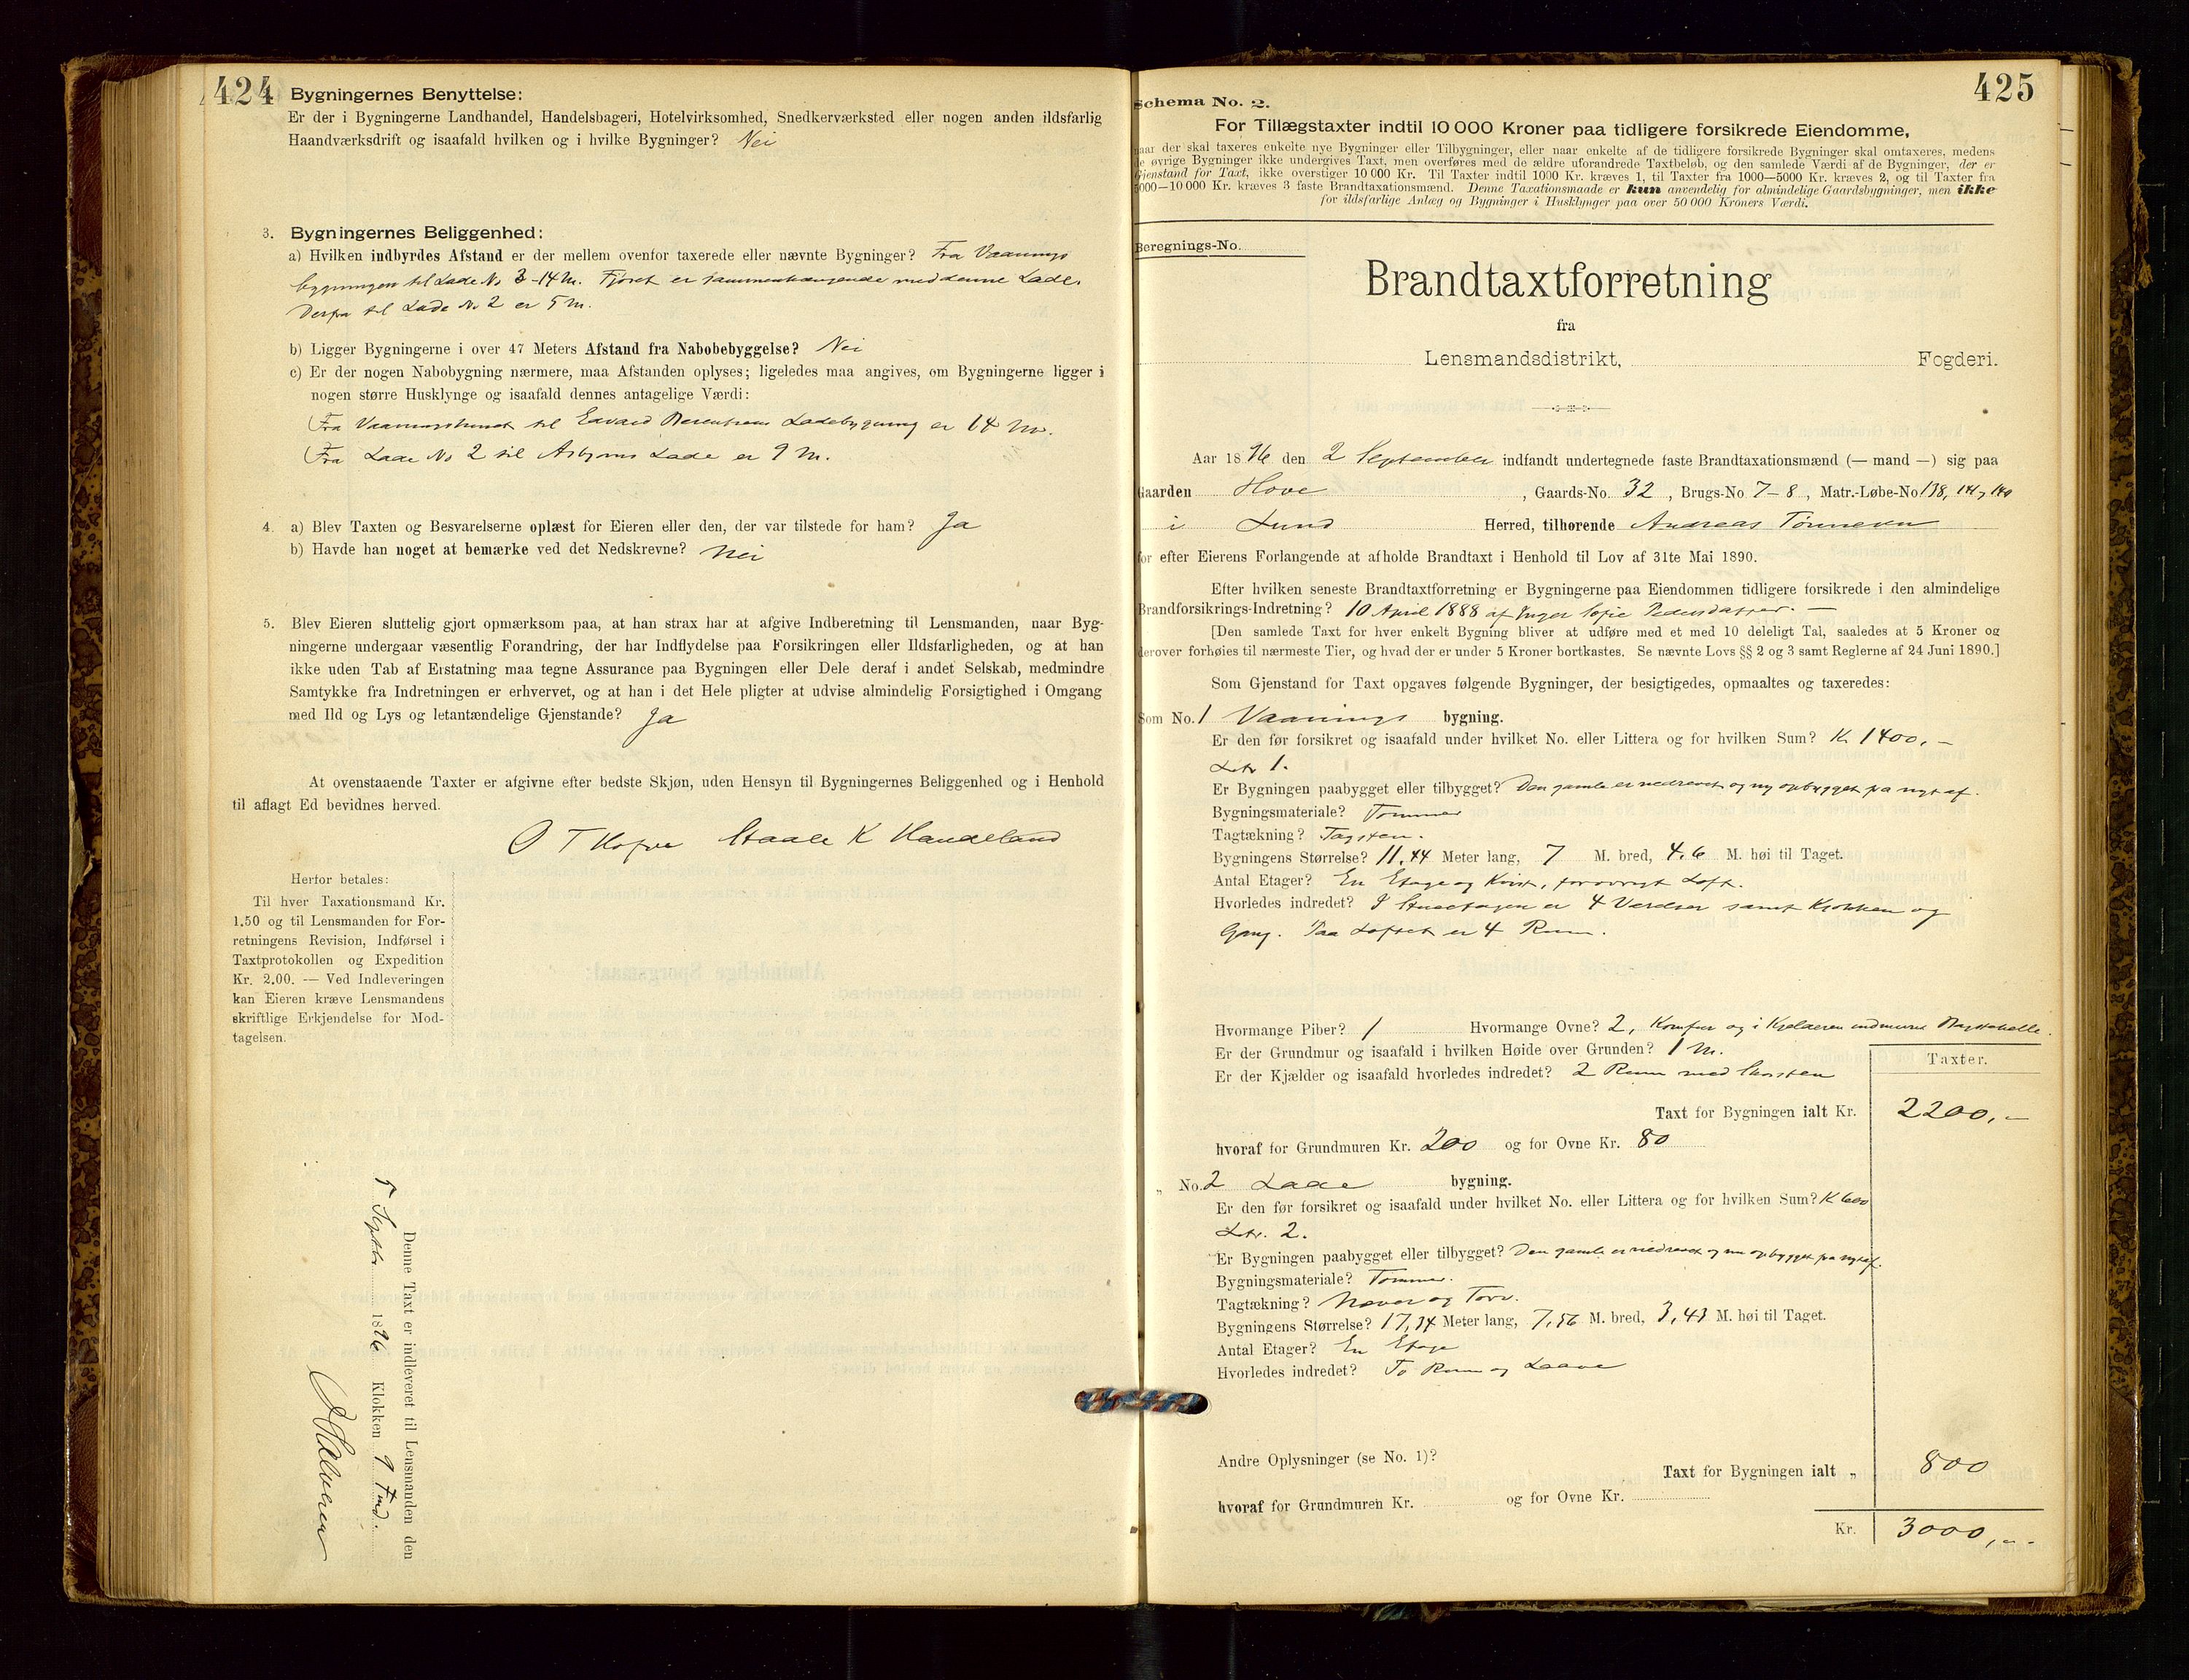 424
Bygningernes Benyttelse:
Er der i Bygningerne Landhandel, Handelsbageri, Hotelvirksomhed, Snedkerværksted eller nogen anden ildsfarlig
Haandværksdrift og isaafald hvilken og i hvilke Bygninger? Nei
3. Bygningernes Beliggenhed:
a) Hvilken indbyrdes Afstand er der mellem ovenfor taxerede eller nævnte Bygninger? Fra Vaanings
bygningen til Lade No 3 - 14 M. Fjøset er sammenhængende med denne Lade.
Derfra til Lade No 2 er 5 M.
b) Ligger Bygningerne i over 47 Meters Afstand fra Nabobebyggelse? Nei
c) Er der nogen Nabobygning nærmere, maa Afstanden oplyses; ligeledes maa angives, om Bygningerne ligger i
nogen større Husklynge og isaafald dennes antagelige Værdi:
Fra Vaaningshuset til Edvard Berentsens Ladebygning er 14 M.
Fra Lade No 2 til Asbjørns Lade er 9 M.
4. a) Blev Taxten og Besvarelserne oplæst for Eieren eller den, der var tilstede for ham? Ja
b) Havde han noget at bemærke ved det Nedskrevne? Nei
5. Blev Eieren sluttelig gjort opmærksom paa, at han strax har at afgive Indberetning til Lensmanden, naar Byg-
ningerne undergaar væsentlig Forandring, der har Indflydelse paa Forsikringen eller Ildsfarligheden, og at han
ikke uden Tab af Erstatning maa tegne Assurance paa Bygningen eller Dele deraf i andet Selskab, medmindre
Samtykke fra Indretningen er erhvervet, og at han i det Hele pligter at udvise almindelig Forsigtighed i Omgang
med Ild og Lys og letantændelige Gjenstande? Ja
At ovenstaaende Taxter er afgivne efter bedste Skjøn, uden Hensyn til Bygningernes Beliggenhed og i Henhold
til aflagt Ed bevidnes herved.
O T Staale K Haudeland
Herfor betales:
Til hver Taxationsmand Kr.
1.50 og til Lensmanden for For-
retningens Revision, Indførsel i
Taxtprotokollen og Expedition
Kr. 2.00. — Ved Indleveringen
kan Eieren kræve Lensmandens
skriftlige Erkjendelse for Mod-
tagelsen.
Denne Taxt er indleveret til Lensmanden den
5 Septbr 1896 Klokken 9 Fmd.
425
Schema No. 2.
For Tillægstaxter indtil 10 000 Kroner paa tidligere forsikrede Eiendomme,
naar der skal taxeres enkelte nye Bygninger eller Tilbygninger, eller naar enkelte af de tidligere forsikrede Bygninger skal omtaxeres, medens
de øvrige Bygninger ikke undergives Taxt, men overføres med de ældre uforandrede Taxtbeløb, og den samlede Værdi af de Bygninger, der er
Gjenstand for Taxt, ikke overstiger 10 000 Kr. Til Taxter indtil 1000 Kr. kræves 1, til Taxter fra 1000—5000 Kr. kræves 2, og til Taxter fra
5000—10 000 Kr. kræves 3 faste Brandtaxationsmænd. Denne Taxationsmaade er kun anvendelig for almindelige Gaardsbygninger, men ikke
for ildsfarlige Anlæg og Bygninger i Husklynger paa over 50 000 Kroners Værdi.
Beregnings-No.
Brandtaxtforretning
fra
Lensmandsdistrikt, Fogderi.
Aar 1896 den 2 September indfandt undertegnede faste Brandtaxationsmænd (— mand —) sig paa
Gaarden Hove, Gaards-No. 32, Brugs-No 7-8, Matr.-Løbe-No 138, 141, 140
i Lund Herred, tilhørende Andreas Tønnesen
for efter Eierens Forlangende at afholde Brandtaxt i Henhold til Lov af 31te Mai 1890.
Efter hvilken seneste Brandtaxtforretning er Bygningerne paa Eiendommen tidligere forsikrede i den almindelige
Brandforsikrings-Indretning? 10 April 1888 af Inger Sofie Pedersdatter. —
[Den samlede Taxt for hver enkelt Bygning bliver at udføre med et med 10 deleligt Tal, saaledes at 5 Kroner og
derover forhøies til nærmeste Tier, og hvad der er under 5 Kroner bortkastes. Se nævnte Lovs §§ 2 og 3 samt Reglerne af 24 Juni 1890.]
Som Gjenstand for Taxt opgaves følgende Bygninger, der besigtigedes, opmaaltes og taxeredes:
Som No. 1 Vaanings bygning.
Er den før forsikret og isaafald under hvilket No. eller Littera og for hvilken Sum? K 1400,-
Ltr 1.
Er Bygningen paabygget eller tilbygget? Den gamle er nedrevet og ny opbygget pa nyt af.
Bygningsmateriale? Tømmer
Tagtækning? Tagsten.
Bygningens Størrelse? 11,44 Meter lang, 7 M. bred, 4,6 M. høi til Taget.
Antal Etager? En Etage og Kvist, forøvrigt Loft.
Hvorledes indredet? I Stueetagen er 4 Værelser samt Kjøkken og
Gang. Paa Loftet er 4 Rum.
Hvormange Piber? 1 Hvormange Ovne? 2, Komfur og i Kjelderen indmuret
Er der Grundmur og isaafald i hvilken Høide over Grunden? 1 M.
Er der Kjælder og isaafald hvorledes indredet? 2 Rum med Skorsten
Taxter.
Taxt for Bygningen ialt Kr. 2200,-
hvoraf for Grundmuren Kr. 200 og for Ovne Kr. 80
„ No. 2 Lade bygning.
Er den før forsikret og isaafald under hvilket No. eller Littera og for hvilken Sum? K 600
Ltr. 2.
Er Bygningen paabygget eller tilbygget? Den gamle er nedrevet og nu opbygget pa nyt af.
Bygningsmateriale? Tømmer.
Tagtækning? Næver og Torv.
Bygningens Størrelse? 17,34 Meter lang, 7,56 M. bred, 3,43 M. høi til Taget.
Antal Etager? En Etage
Hvorledes indredet? To Rum og Laave
Andre Oplysninger (se No. 1)?
Taxt for Bygningen ialt „ 800
hvoraf for Grundmuren Kr. og for Ovne Kr.
Kr. 3000,-